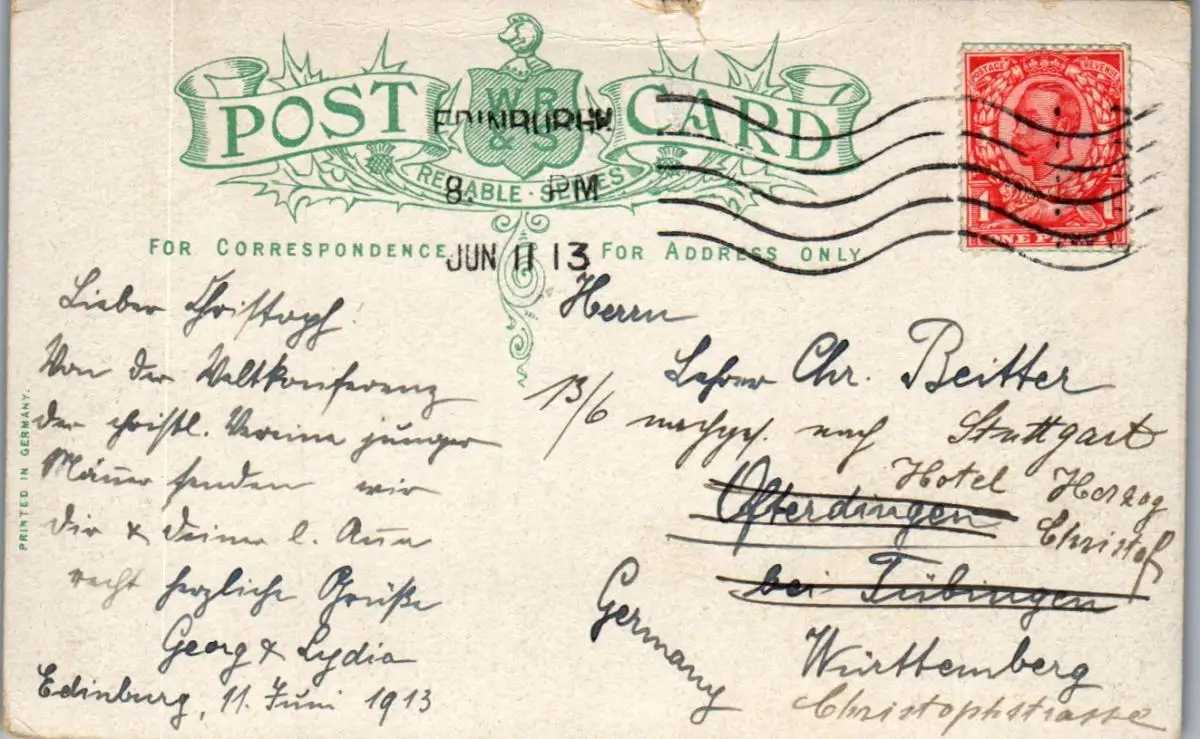 POST CARD
W.R. & S
RELIABLE SERIES
EDINBURGH
8. PM
JUN 11 13
POSTAGE REVENUE
1 1
ONE PENNY
FOR CORRESPONDENCE
FOR ADDRESS ONLY
PRINTED IN GERMANY.
Lieber Christoph!
Von der Weltkonferenz
der christl. Vereine junger
Männer senden wir
Dir & Deiner l. Anna
recht herzliche Grüße
Georg & Lydia
Edinburg, 11. Juni 1913
Herrn
Lehrer Chr. Beitter
13/6 nachges. nach Stuttgart
Hotel Herzog
Christof
Ofterdingen
bei Tübingen
Württemberg
Germany
Christophstrasse